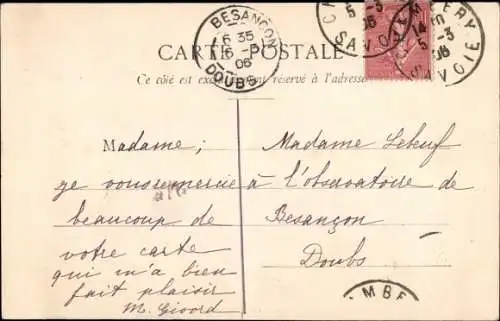 BESANÇON
6 35
6-3
06
DOUBS
5-3
06
SAVOIE
ERY
14
5-3
06
SAVOIE
CARTE POSTALE
Ce côté est exclusivement réservé à l'adresse
Madame;
je vous remercie
beaucoup de
votre carte
qui m'a bien
fait plaisir
M. Girord
Madame Lebeuf
à l'observatoire de
Besançon
Doubs
MBE